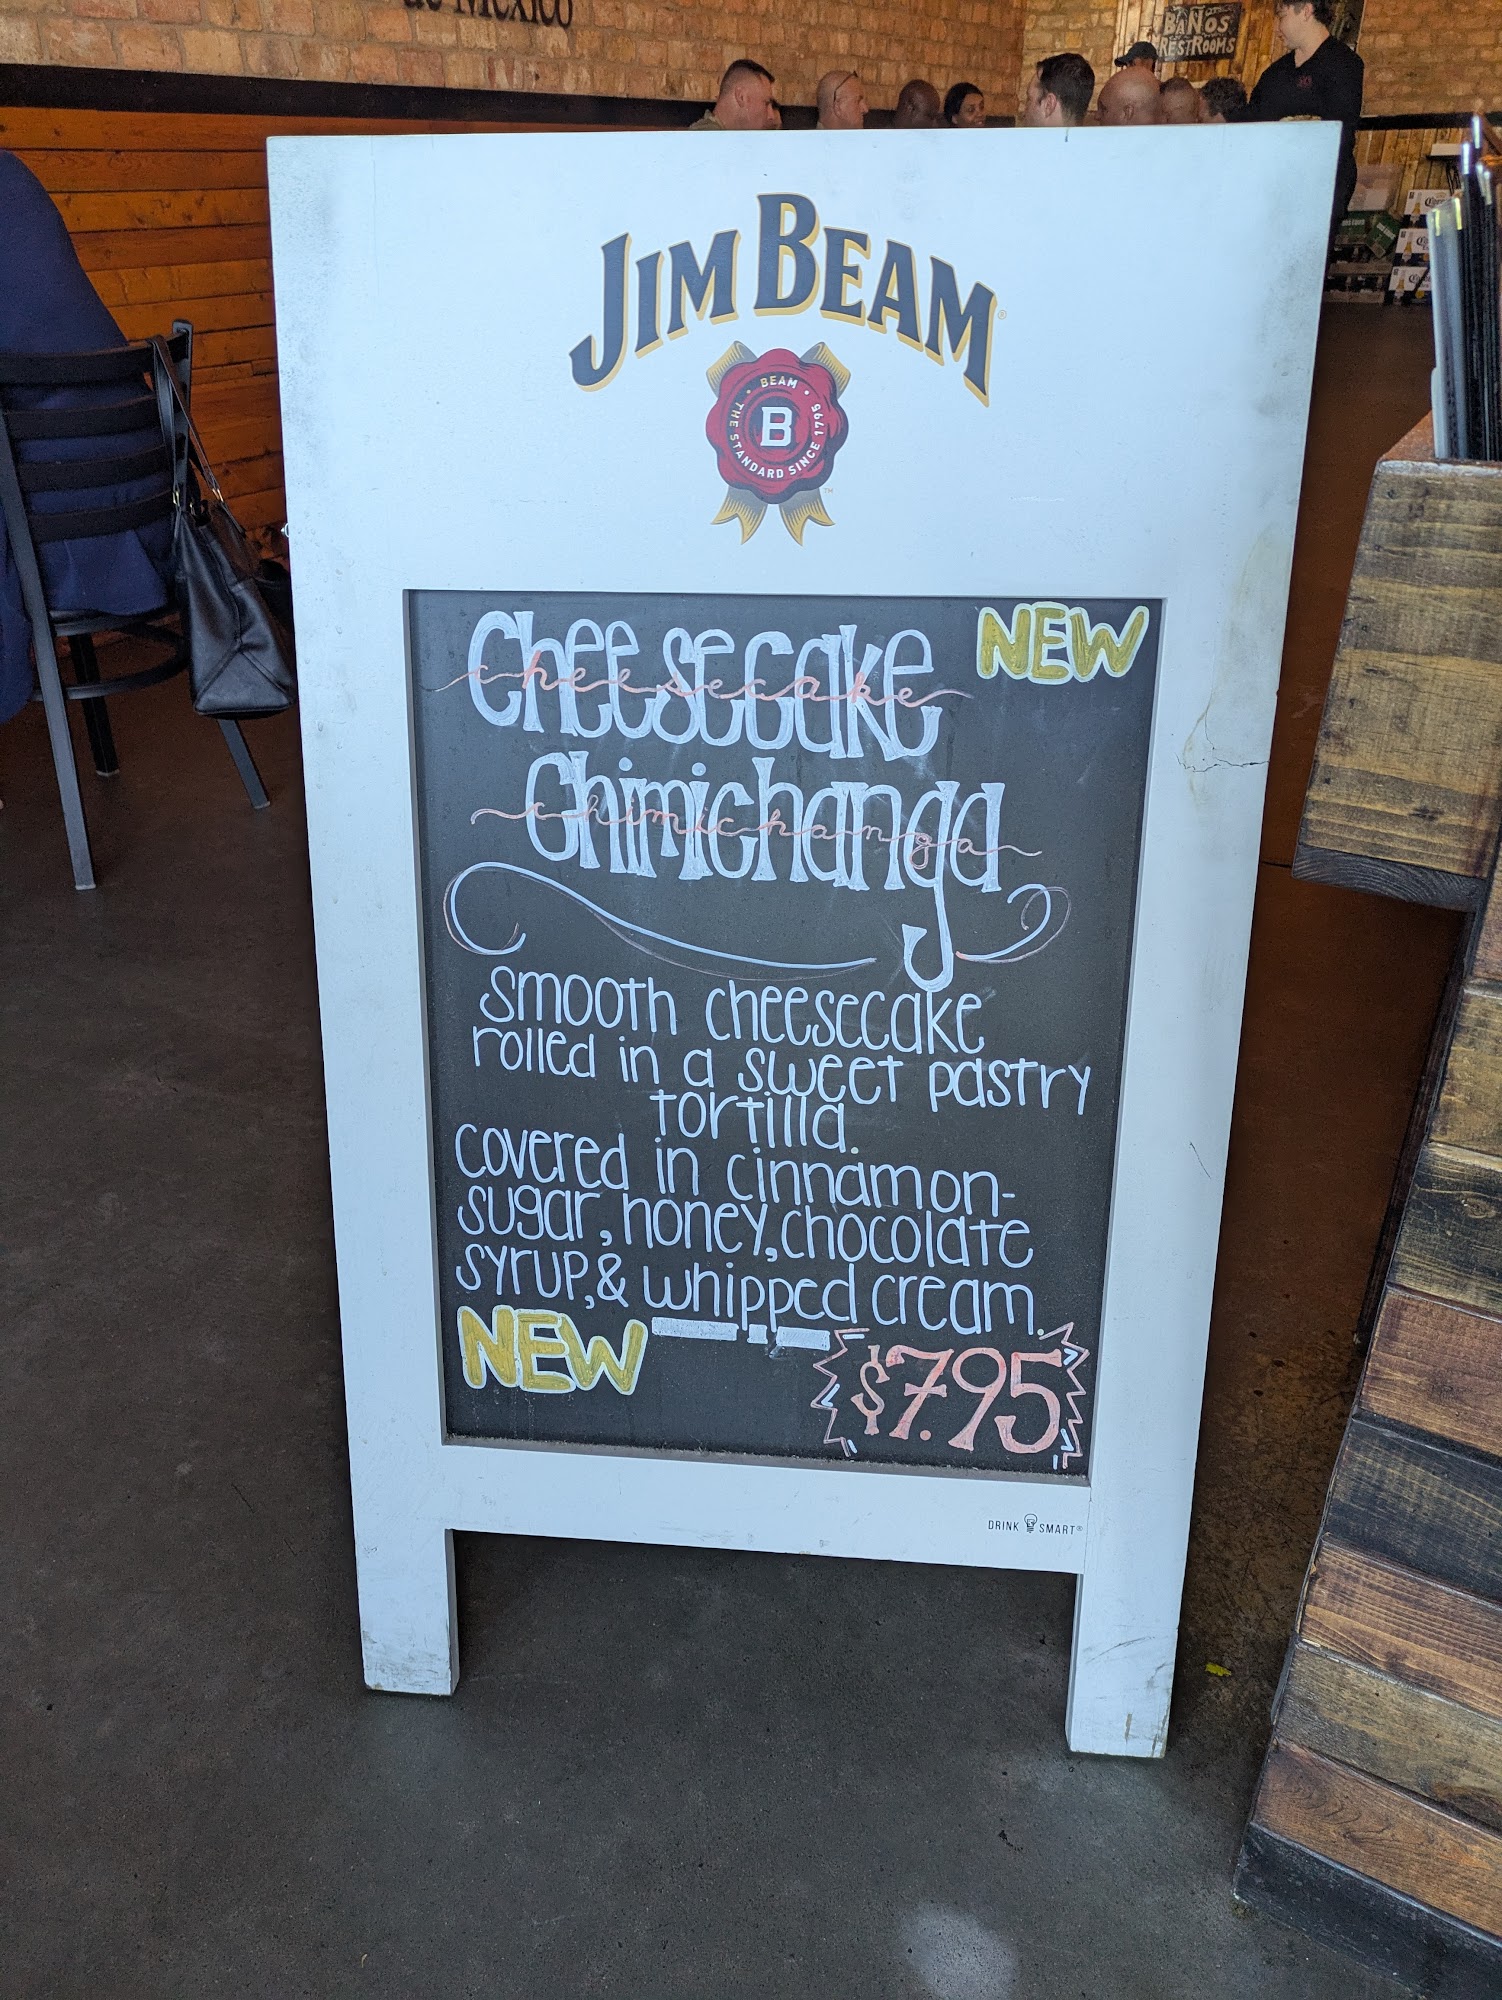 de Mexico
BAÑOS
RESTROOMS
JIM BEAM®
BEAM
B
THE STANDARD SINCE 1795
™
NEW
cheesecake
cheesecake
chimichanga
chimichanga
smooth cheesecake
rolled in a sweet pastry
tortilla.
covered in cinnamon-
sugar, honey, chocolate
syrup, & whipped cream.
NEW
$7.95
DRINK SMART®